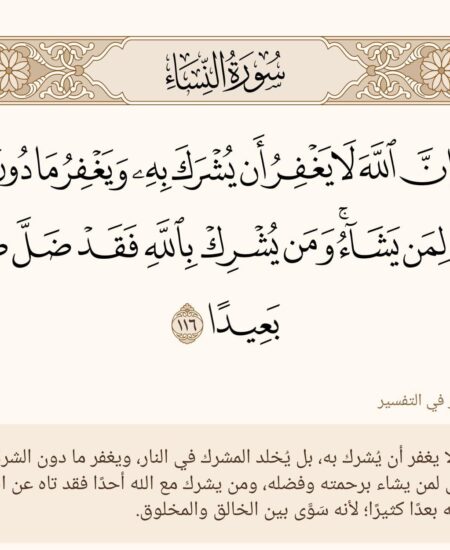 سُورَةُ النِّسَاءِ
نَّ ٱللَّهَ لَا يَغْفِرُ أَن يُشْرَكَ بِهِۦ وَيَغْفِرُ مَا دُونَ
لِمَن يَشَآءُۚ وَمَن يُشْرِكْ بِٱللَّهِ فَقَدْ ضَلَّ
بَعِيدًا ١١٦
في التفسير
لا يغفر أن يُشرك به، بل يُخلد المشرك في النار، ويغفر ما دون الشر
لمن يشاء برحمته وفضله، ومن يشرك مع الله أحدًا فقد تاه عن ا
ه بعدًا كثيرًا؛ لأنه سَوَّى بين الخالق والمخلوق.